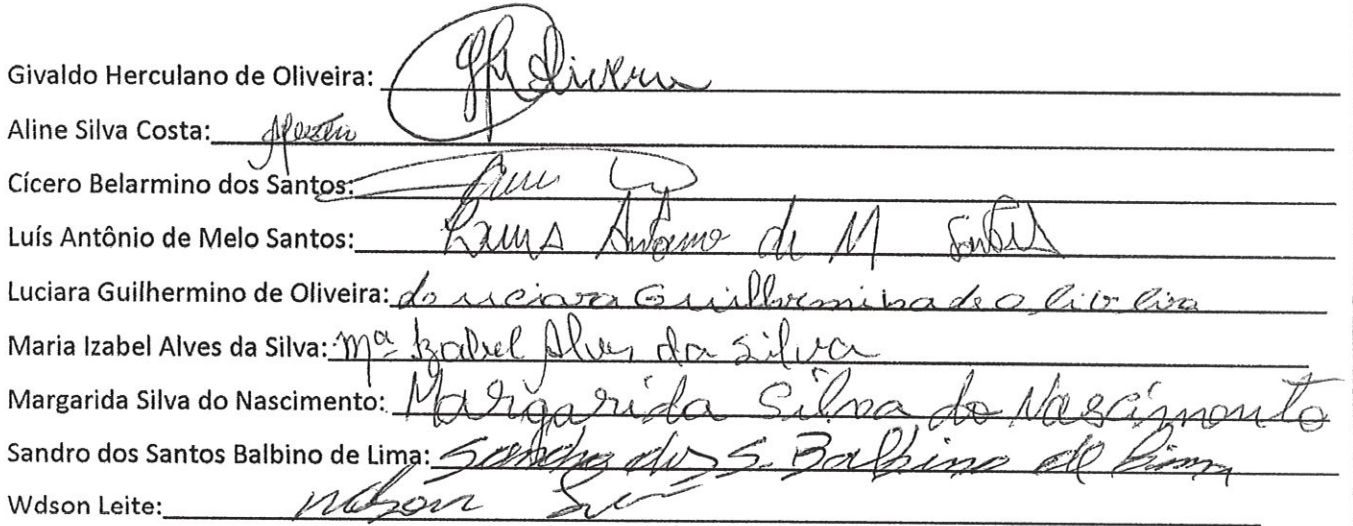 Givaldo Herculano de Oliveira: GH Oliveira
Aline Silva Costa:
Cícero Belarmino dos Santos:
Luís Antônio de Melo Santos: Luis Antonio de M Santos
Luciara Guilhermino de Oliveira: Luciara Guilhermina de Oliveira
Maria Izabel Alves da Silva: Mª Izabel Alves da Silva
Margarida Silva do Nascimento: Margarida Silva do Nascimento
Sandro dos Santos Balbino de Lima: Sandro dos S. Balbino de Lima
Wdson Leite: Wdson